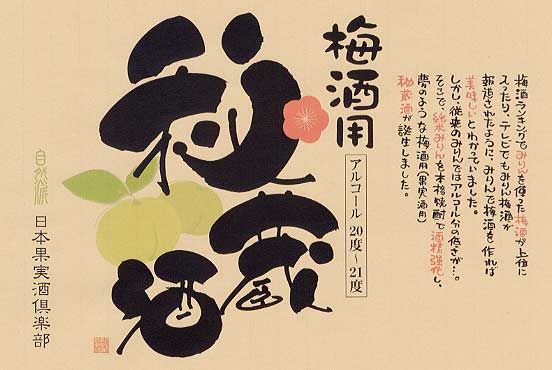 梅酒ランキングでみりんを使った梅酒が上位に
入ったり、テレビでもみりん梅酒が
報道されたように、みりんで梅酒を作れば
美味しいとわかっていました。
しかし、従来のみりんではアルコール分の低さが…。
そこで、純米みりんを本格焼酎で酒精強化し、
夢のような梅酒用(果実酒用)
秘蔵酒が誕生しました。
梅酒用
アルコール 20度～21度
秘蔵酒
自然派
日本果実酒倶楽部